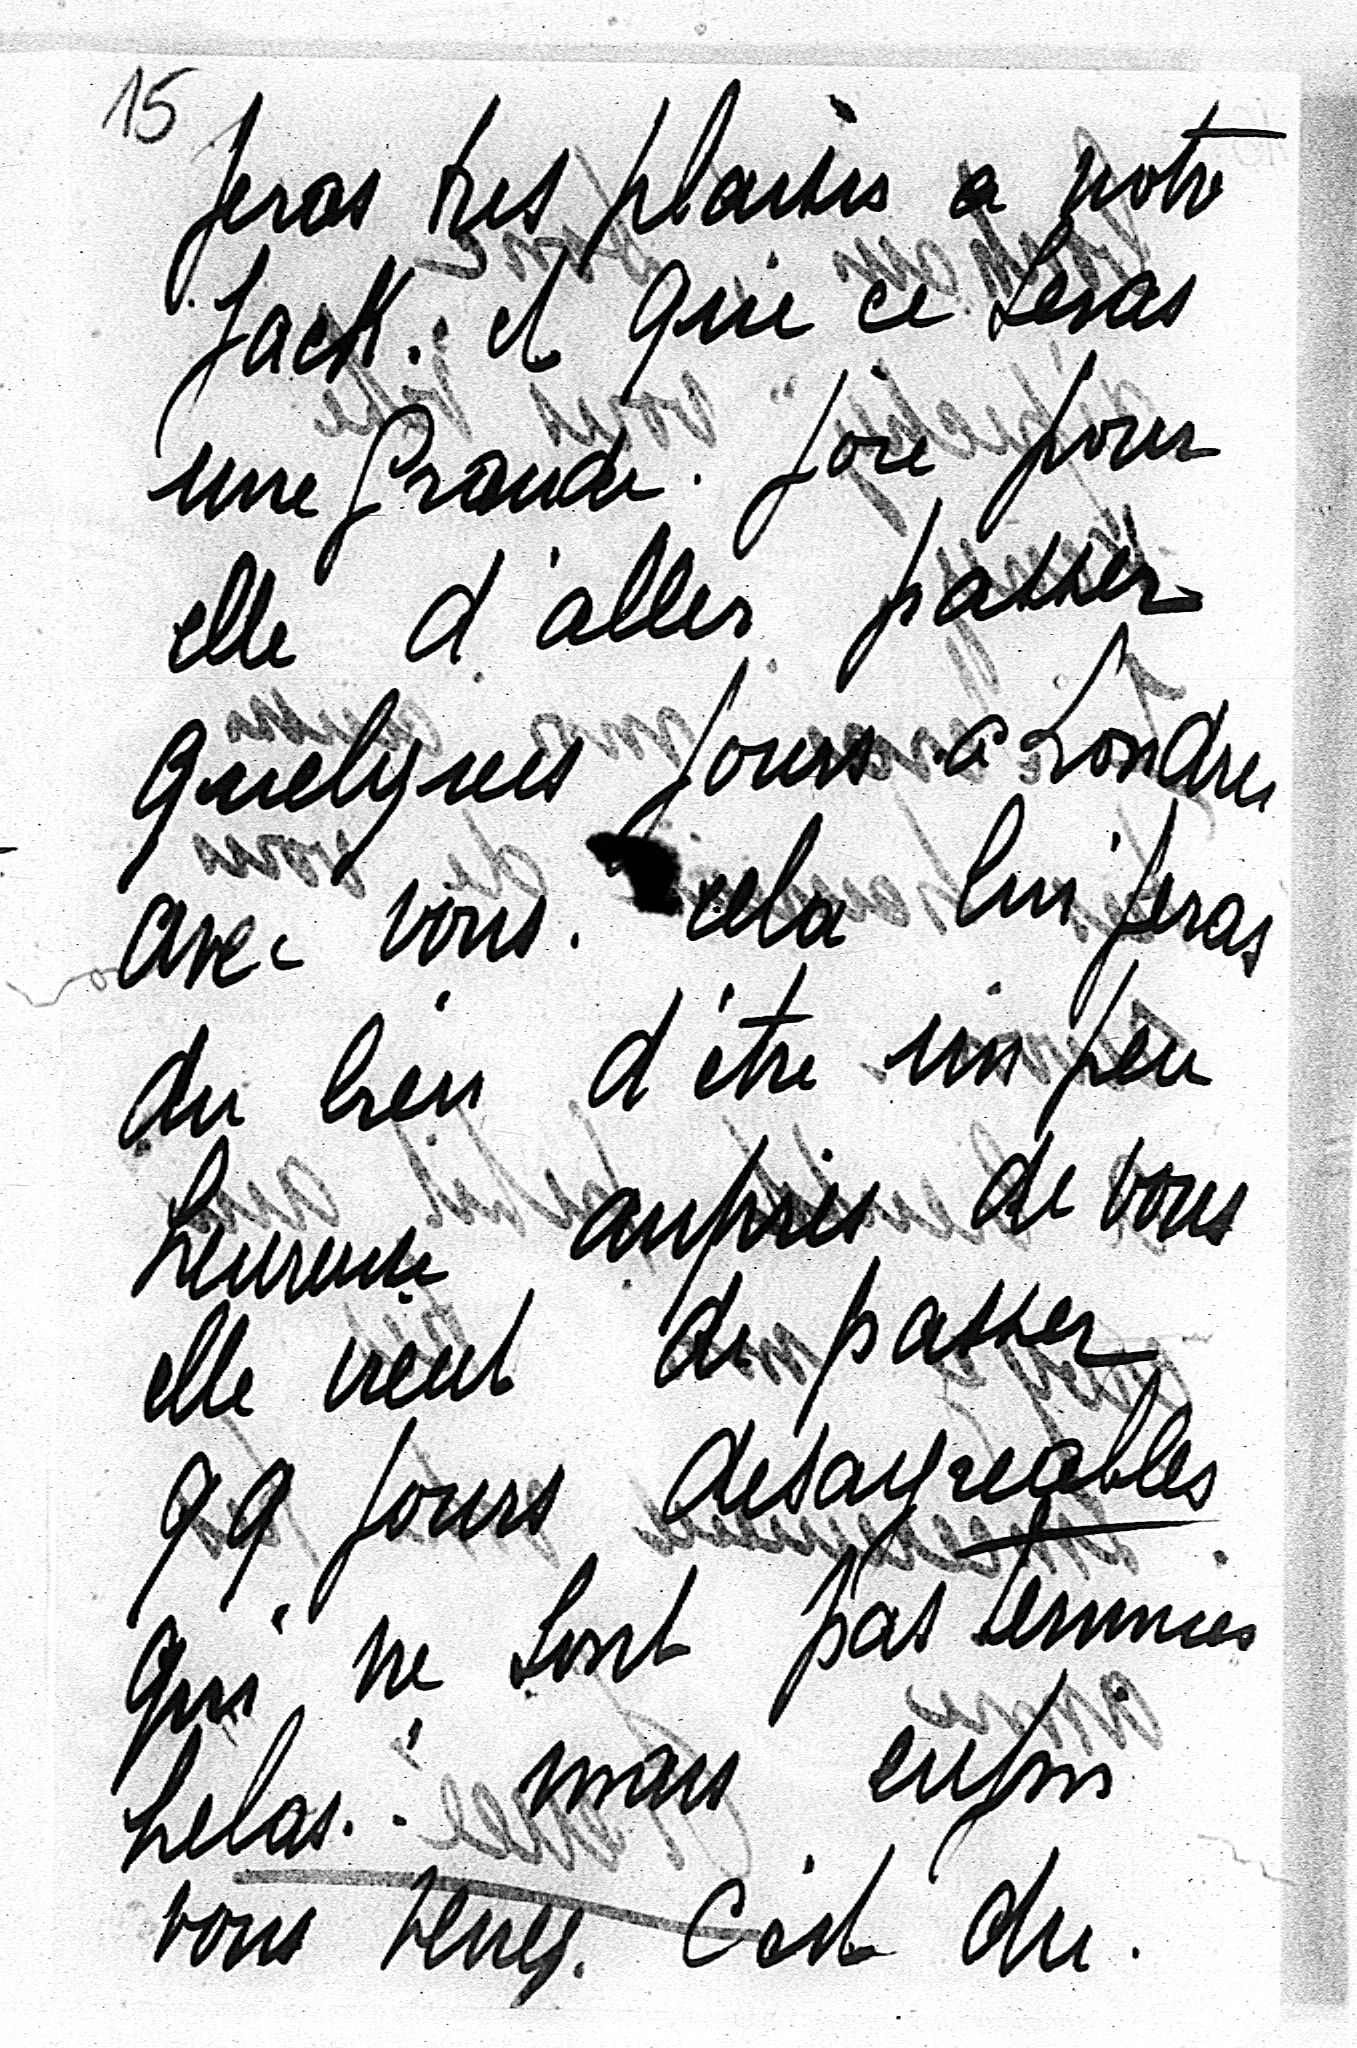 15
feras tres plaisir a notre
Jack. et que ce seras
une Grande. joie pour
elle d'aller passer
quelques jours a Londres
avec vous. cela lui feras
du bien d'être un peu
heureuse auprès de vous
elle vient de passer
qq jours desagreables
qui ne sont pas terminés
helas.. mais enfin
vous verrez. C'est du.